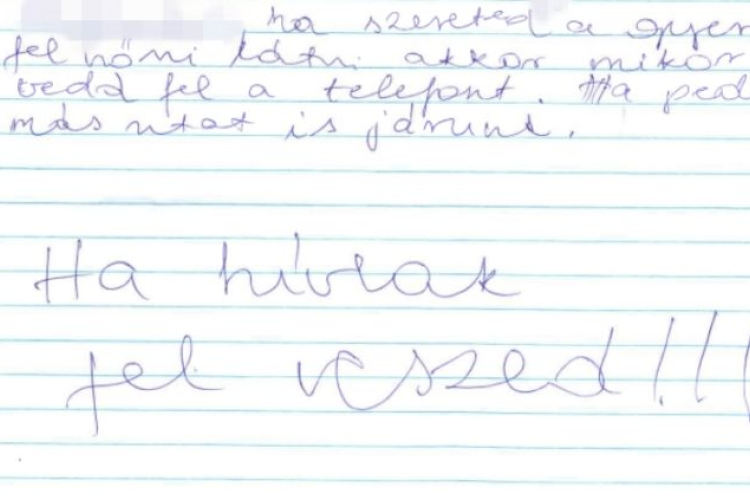 ha szereted a gyer
fel nőni látni akkor mikor
vedd fel a telefont. Ha ped
más utat is járunk.
Ha hívlak
fel veszed!!!